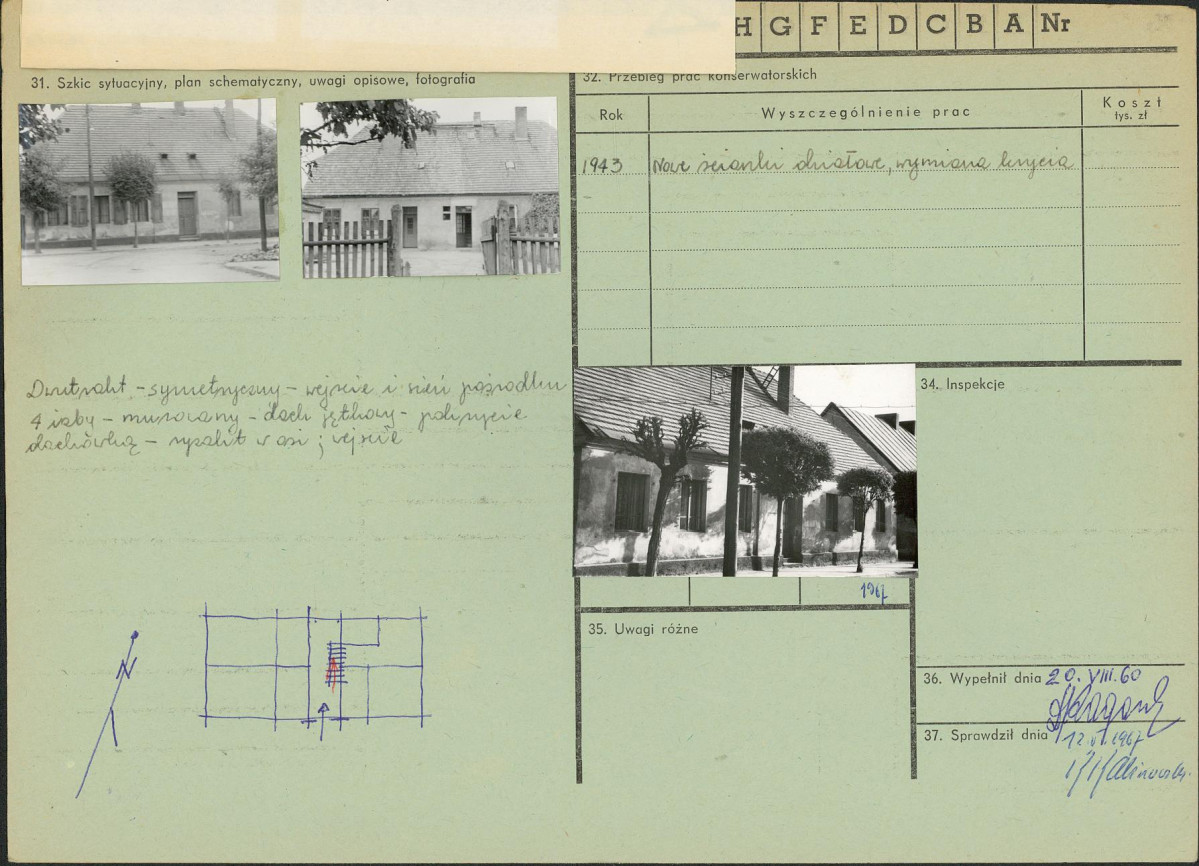 H G F E D C B A Nr
31. Szkic sytuacyjny, plan schematyczny, uwagi opisowe, fotografia
32. Przebieg prac konserwatorskich
Rok
Wyszczególnienie prac
Koszt
tys. zł
1943 Nowe ścianki działowe, wymiana krycia
Dwutrakt - symetryczny - wejście i sień pośrodku
4 izby - murowany - dach jętkowy - pokrycie
dachówką - ryzalit w osi ; wejście
34. Inspekcje
1967
35. Uwagi różne
N
36. Wypełnił dnia 20. VIII. 60
37. Sprawdził dnia
1967